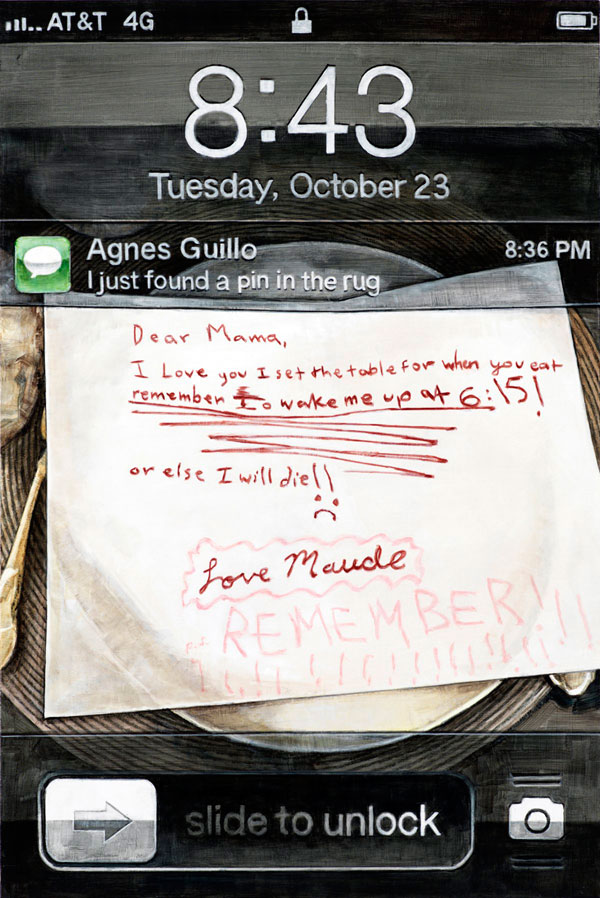 AT&T 4G
8:43
Tuesday, October 23
Agnes Guillo 8:36 PM
I just found a pin in the rug
Dear Mama,
I Love you I set the table for when you eat
remember to wake me up at 6:15!
or else I will die!!
Love Maude
p.s. REMEMBER!!!
!!!!!!!!!!!!!!!
slide to unlock